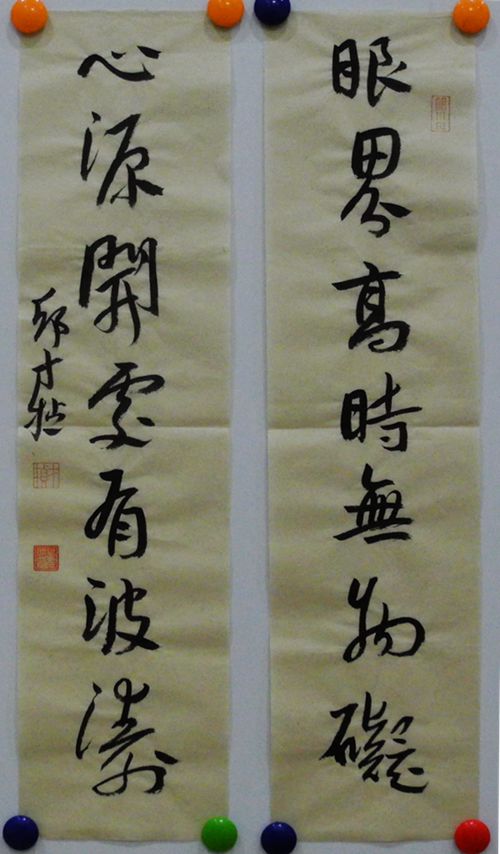 眼界高時無物礙
心源開處有波濤
邱才楨